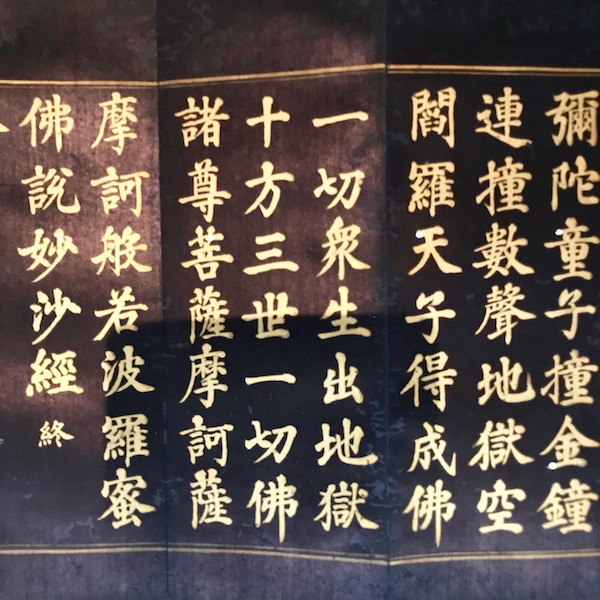 彌陀童子撞金鐘
連撞數聲地獄空
閻羅天子得成佛
一切衆生出地獄
十方三世一切佛
諸尊菩薩摩訶薩
摩訶般若波羅蜜
佛說妙沙經終